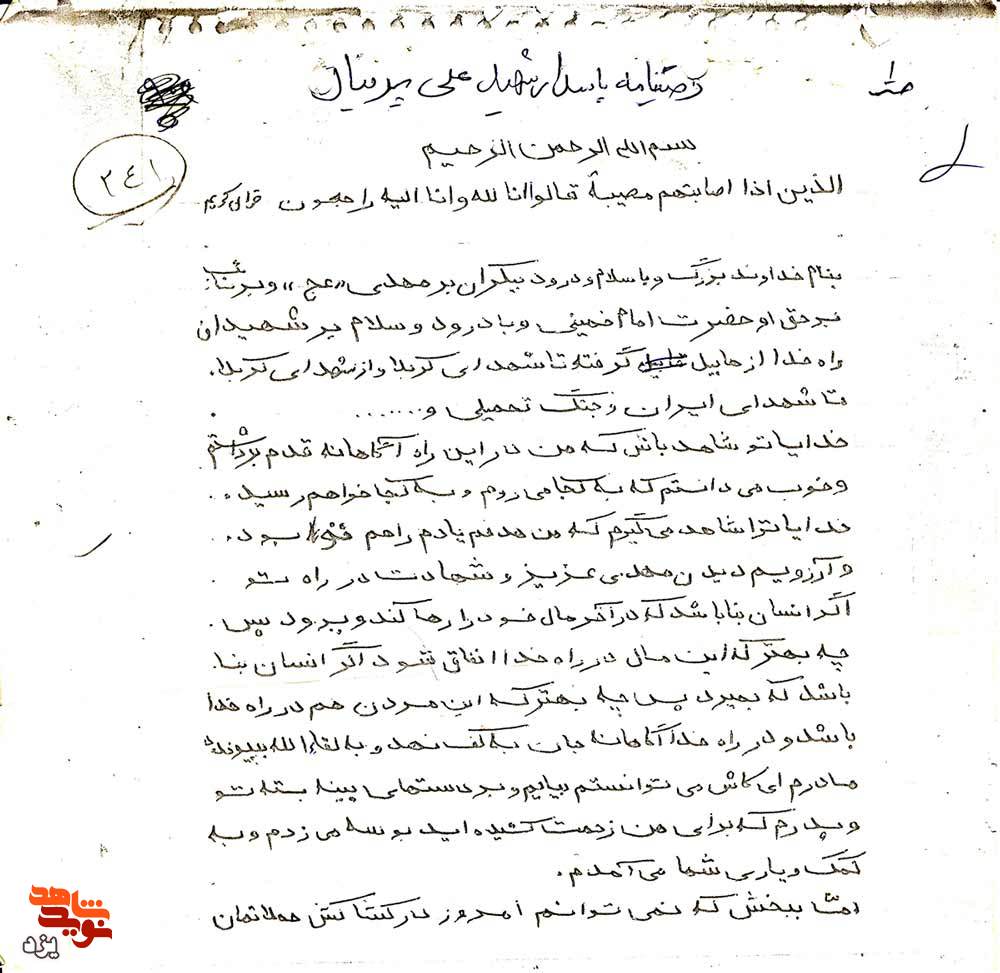 وصیتنامه پاسدار شهید علی پرنیان
۲۴۱
بسم الله الرحمن الرحیم
الذین اذا اصابتهم مصیبة قالوا انا لله وانا الیه راجعون قرآن کریم
بنام خداوند بزرگ و با سلام و درود بیکران بر مهدی «عج» و بر نائب
برحق او حضرت امام خمینی و با درود و سلام بر شهیدان
راه خدا از هابیل گرفته تا شهدای کربلا و از شهدای کربلا
تا شهدای ایران و جنگ تحمیلی و.......
خدایا تو شاهد باش که من در این راه آگاهانه قدم برداشتم
و خوب می دانستم که به کجا می روم و به کجا خواهم رسید.
خدایا ترا شاهد می گیرم که من هدفم یادم راهم بود.
و آرزویم دیدن مهدی عزیز و شهادت در راه تو
اگر انسان بنا باشد که در آخر مال خود را رها کند و برود پس
چه بهتر که این مال در راه خدا انفاق شود اگر انسان بنا
باشد که بمیرد پس چه بهتر که این مردن هم در راه خدا
باشد و در راه خدا آگاهانه جان به کف نهد و به لقاء الله بپیوندد
مادرم ای کاش می توانستم بیایم و بر دستهای پینه بسته تو
و پدرم که برای من زحمت کشیده اید بوسه می زدم و به
کمک و یاری شما می آمدم.
امّا ببخش که نمی توانم امروز در کشاکش حملاتمان
شاهد
نوید
یزد